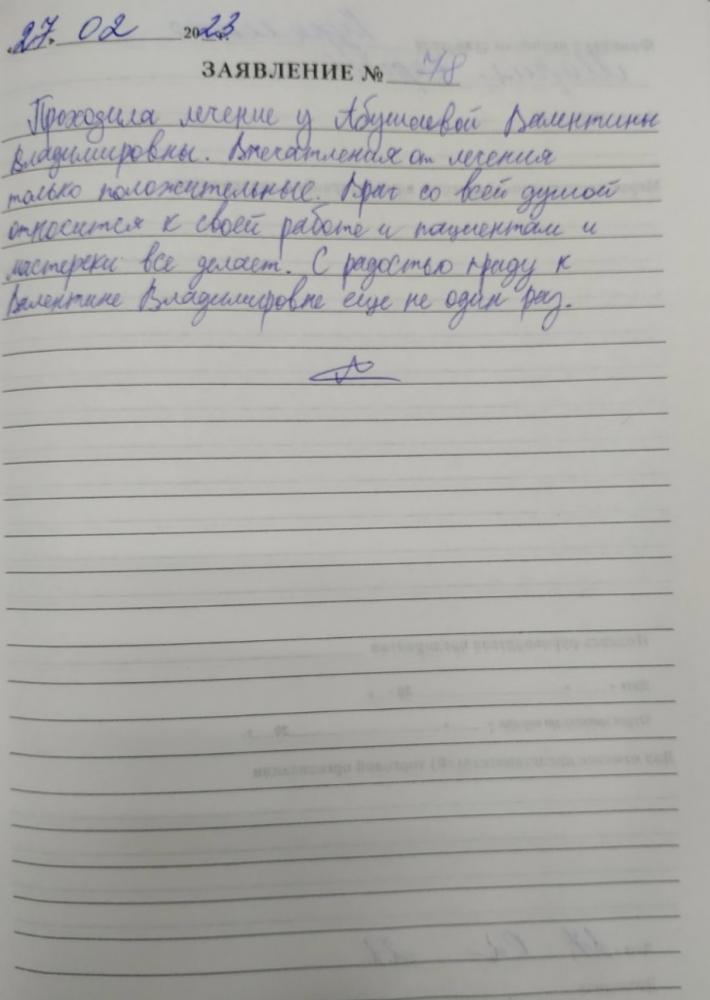 «27» 02 2023 г.
ЗАЯВЛЕНИЕ № 78
Проходила лечение у Абушаевой Валентины
Владимировны. Впечатления от лечения
только положительные. Врач со всей душой
относится к своей работе и пациентам и
мастерски все делает. С радостью приду к
Валентине Владимировне еще не один раз.